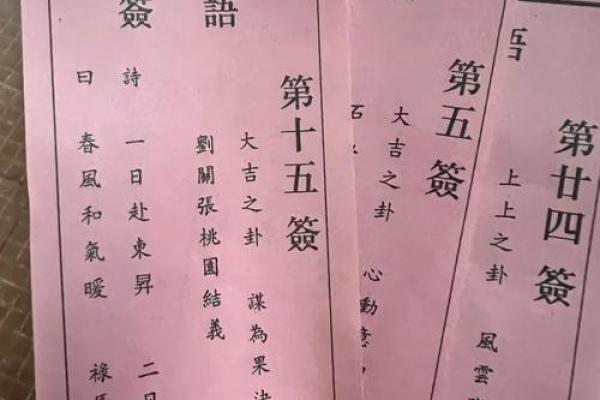 第廿四簽
上上之卦 風雲
第五簽
大吉之卦 心動意
石
簽語
第十五簽
大吉之卦 謀為果
劉關張桃園結義
詩 一日赴東昇 二日
曰 春風和氣暖 祿